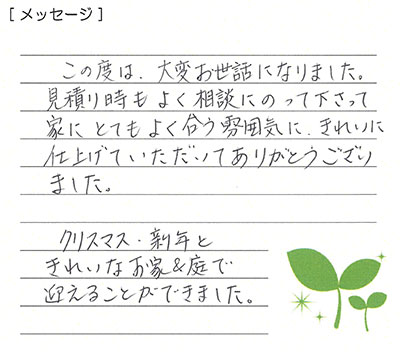 [ メッセージ ]
この度は、大変お世話になりました。
見積り時も よく相談にのって下さって
家に とてもよく合う雰囲気に、きれいに
仕上げていただいてありがとうござり
ました。
クリスマス・新年と
きれいなお家&庭で
迎えることができました。